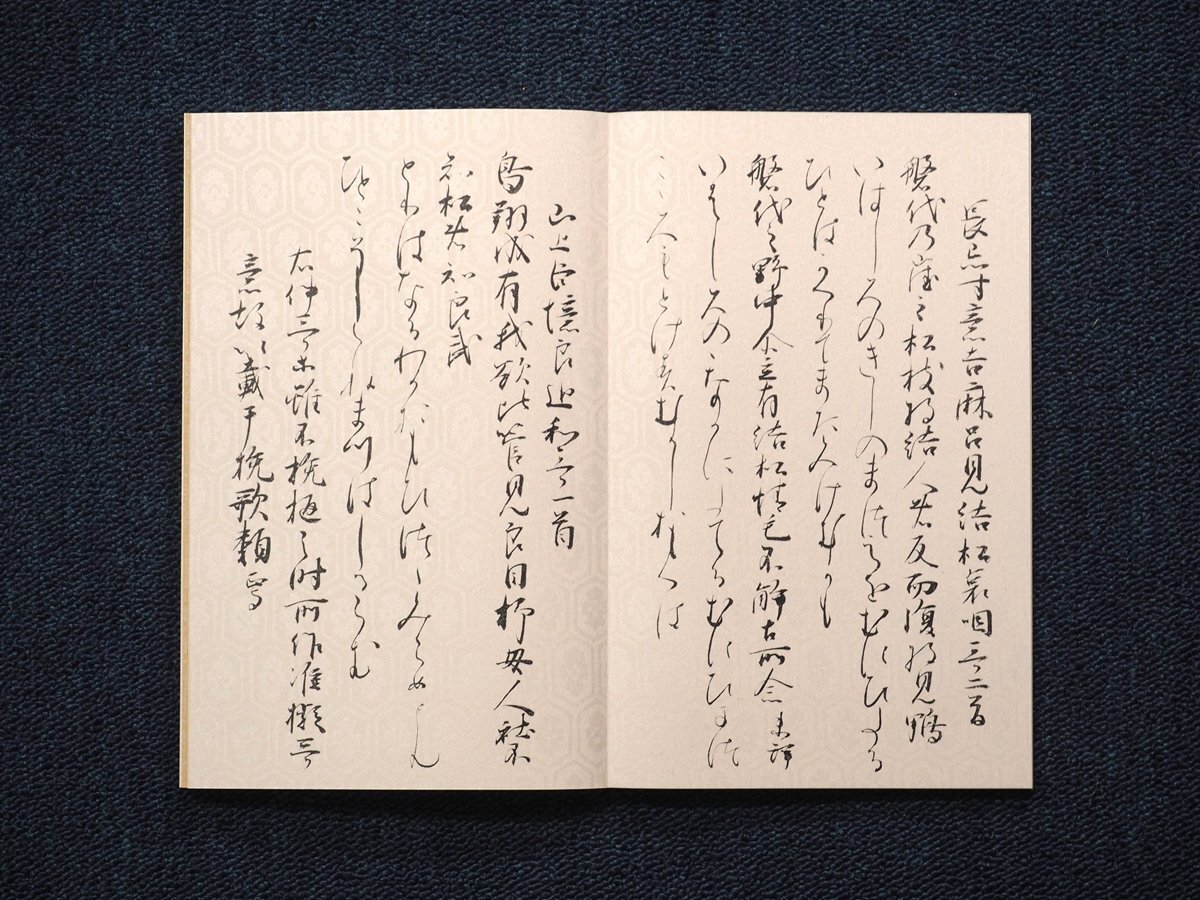 長忌寸意吉麻呂見結松哀咽哥二首
磐代乃崖之松枝将結人者反而復将見鴨
いはしろのきしのまつえをむすひたる
ひとはかへりてまたみけむかも
磐代之野中尓立有結松情毛不解古所念 未詳
いはしろのゝなかにたてるむすひまつ
こゝろもとけすむかしおもへは
山上臣憶良追和哥一首
鳥翔成有我欲比管見良目杼母人社不
知松者知良武
とりはなるわかおもひつゝみらめとも
ひとこそしらねまつはしるらむ
右件哥等雖不挽柩之時所作准擬哥
意故以載于挽歌類焉